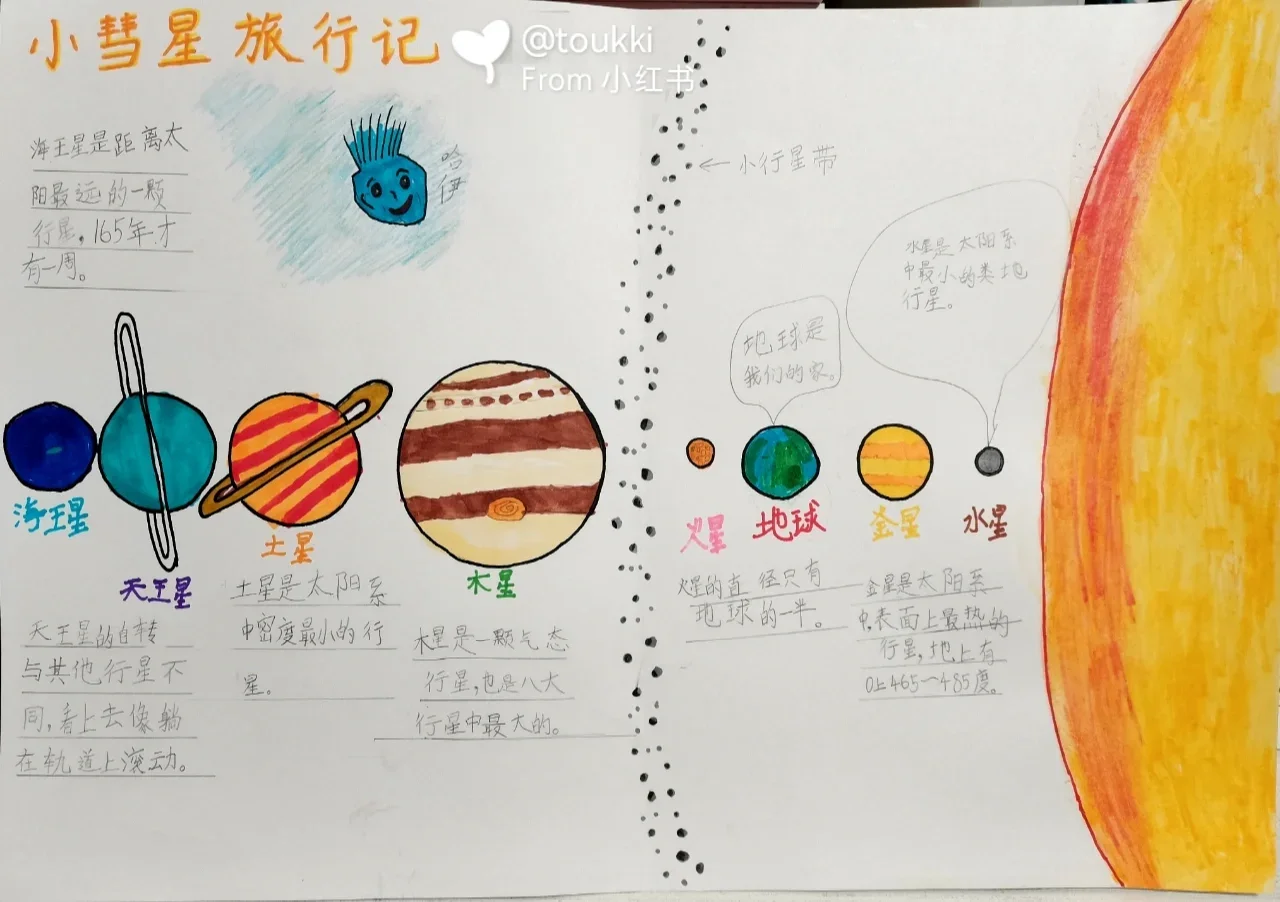 小彗星旅行记
@toukki
From 小红书
海王星是距离太
阳最远的一颗
行星，165年才
有一周。
哈伊
←小行星带
水星是太阳系
中最小的类地
行星。
地球是
我们的家。
海王星
天王星
土星
木星
火星
地球
金星
水星
天王星的自转
与其他行星不
同，看上去像躺
在轨道上滚动。
土星是太阳系
中密度最小的行
星。
木星是一颗气态
行星，也是八大
行星中最大的。
火星的直径只有
地球的一半。
金星是太阳系
中表面上最热的
行星，地上有
465～485度。